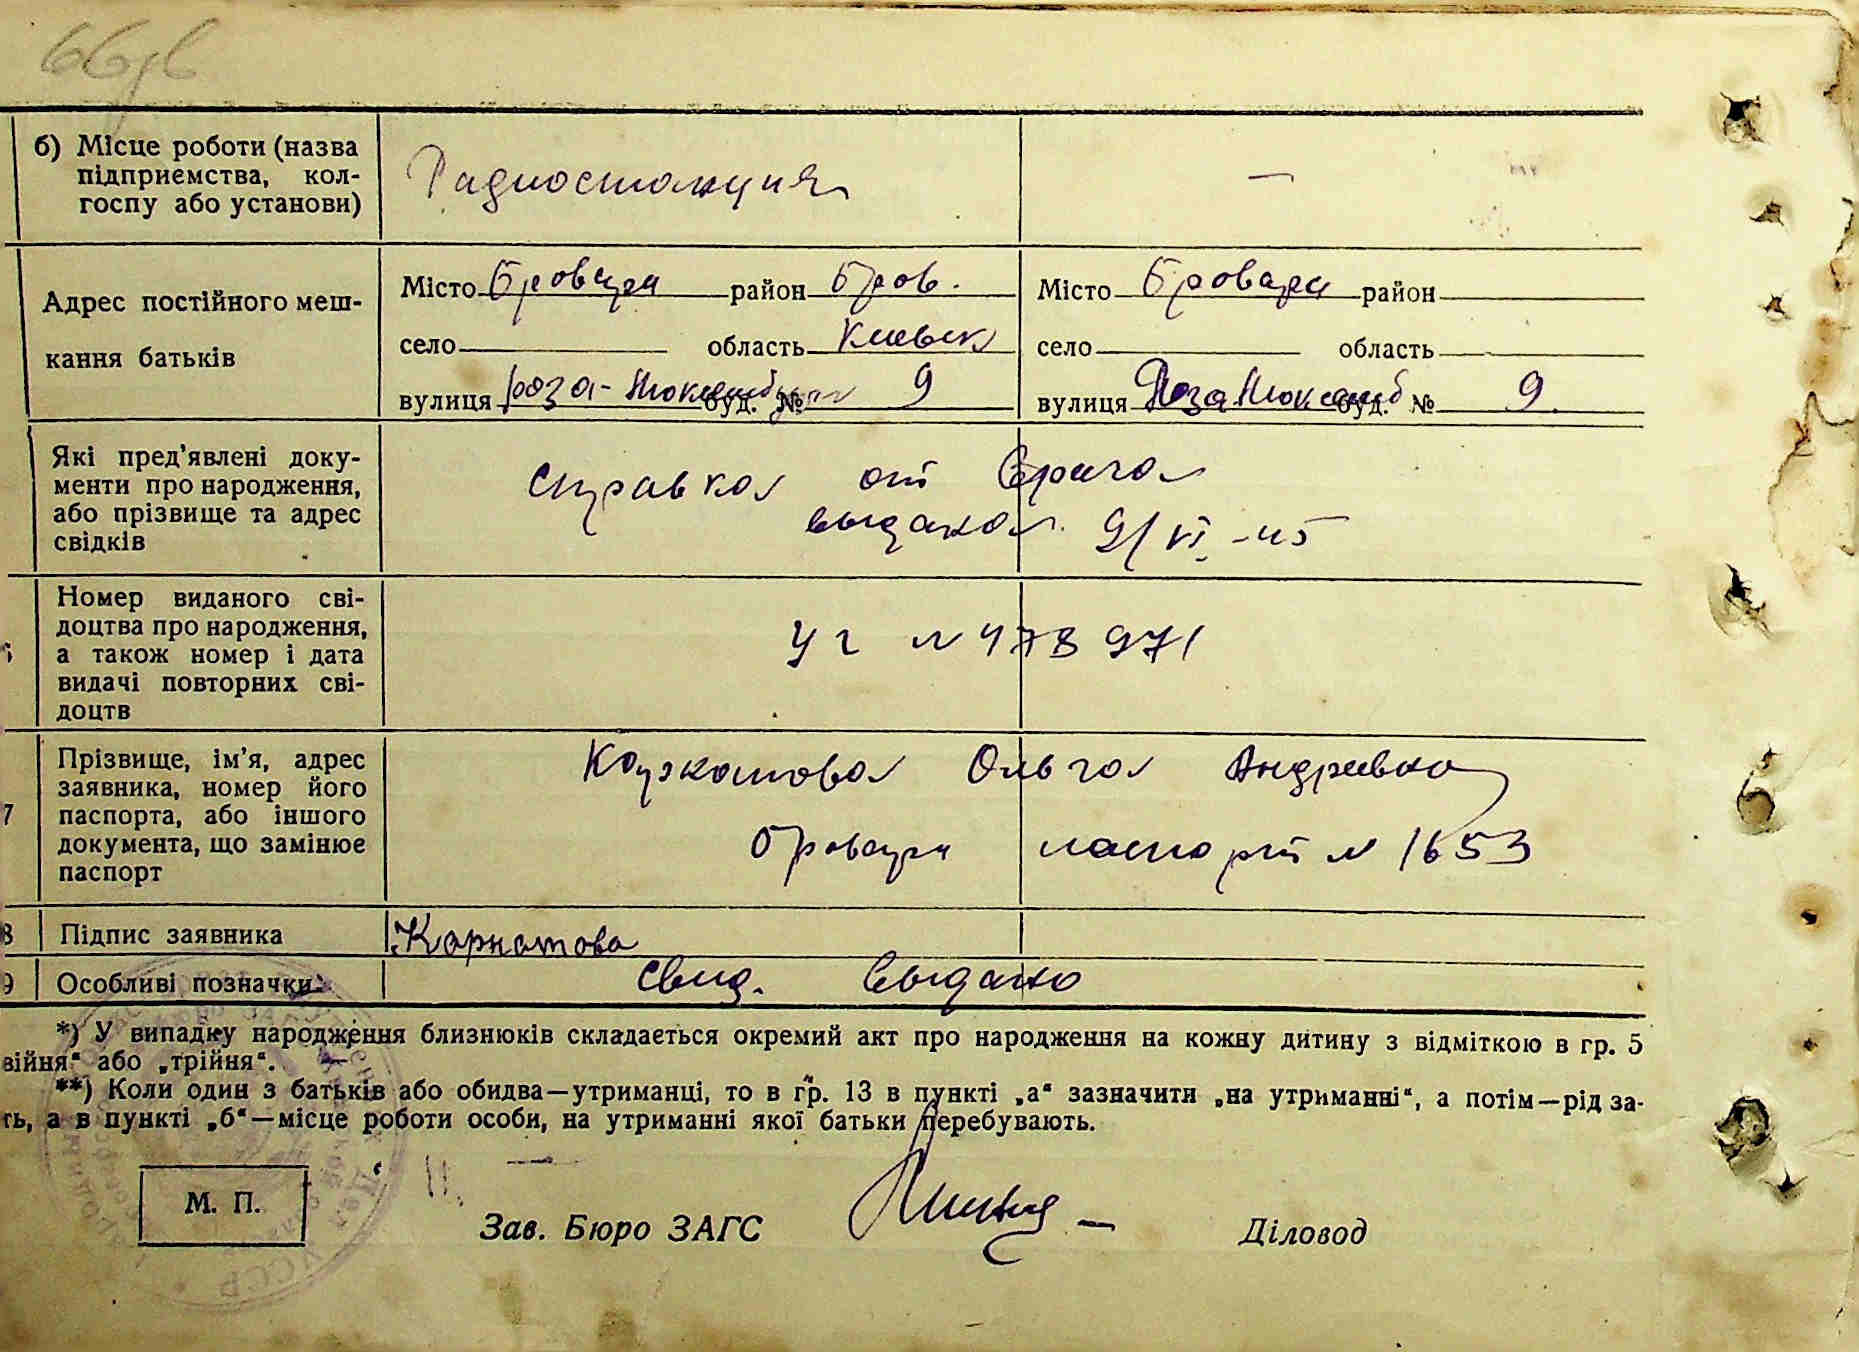 б) Місце роботи (назва
підприємства, кол-
госпу або установи)
Радиостанция
—
Адрес постійного меш-
кання батьків
Місто Бровары район Бров.
село область Киевск
вулиця Роза-Люксембург буд. № 9
Місто Бровары район
село область
вулиця Роза Люксемб буд. № 9.
Які пред'явлені доку-
менти про народження,
або прізвище та адрес
свідків
Справка от Врача
выдана 9/VI-45
Номер виданого сві-
доцтва про народження,
а також номер і дата
видачі повторних сві-
доцтв
УГ N 478971
7
Прізвище, ім'я, адрес
заявника, номер його
паспорта, або іншого
документа, що замінює
паспорт
Ольга Андреевна
Бровары паспорт N 1653
8 Підпис заявника
Карнатова
9 Особливі позначки
Свид. Выдано
*) У випадку народження близнюків складається окремий акт про народження на кожну дитину з відміткою в гр. 5
війня" або „трійня".
**) Коли один з батьків або обидва—утриманці, то в гр. 13 в пункті „а" зазначити „на утриманні", а потім—рід за-
ть, а в пункті „б"—місце роботи особи, на утриманні якої батьки перебувають.
М. П.
Зав. Бюро ЗАГС
Діловод